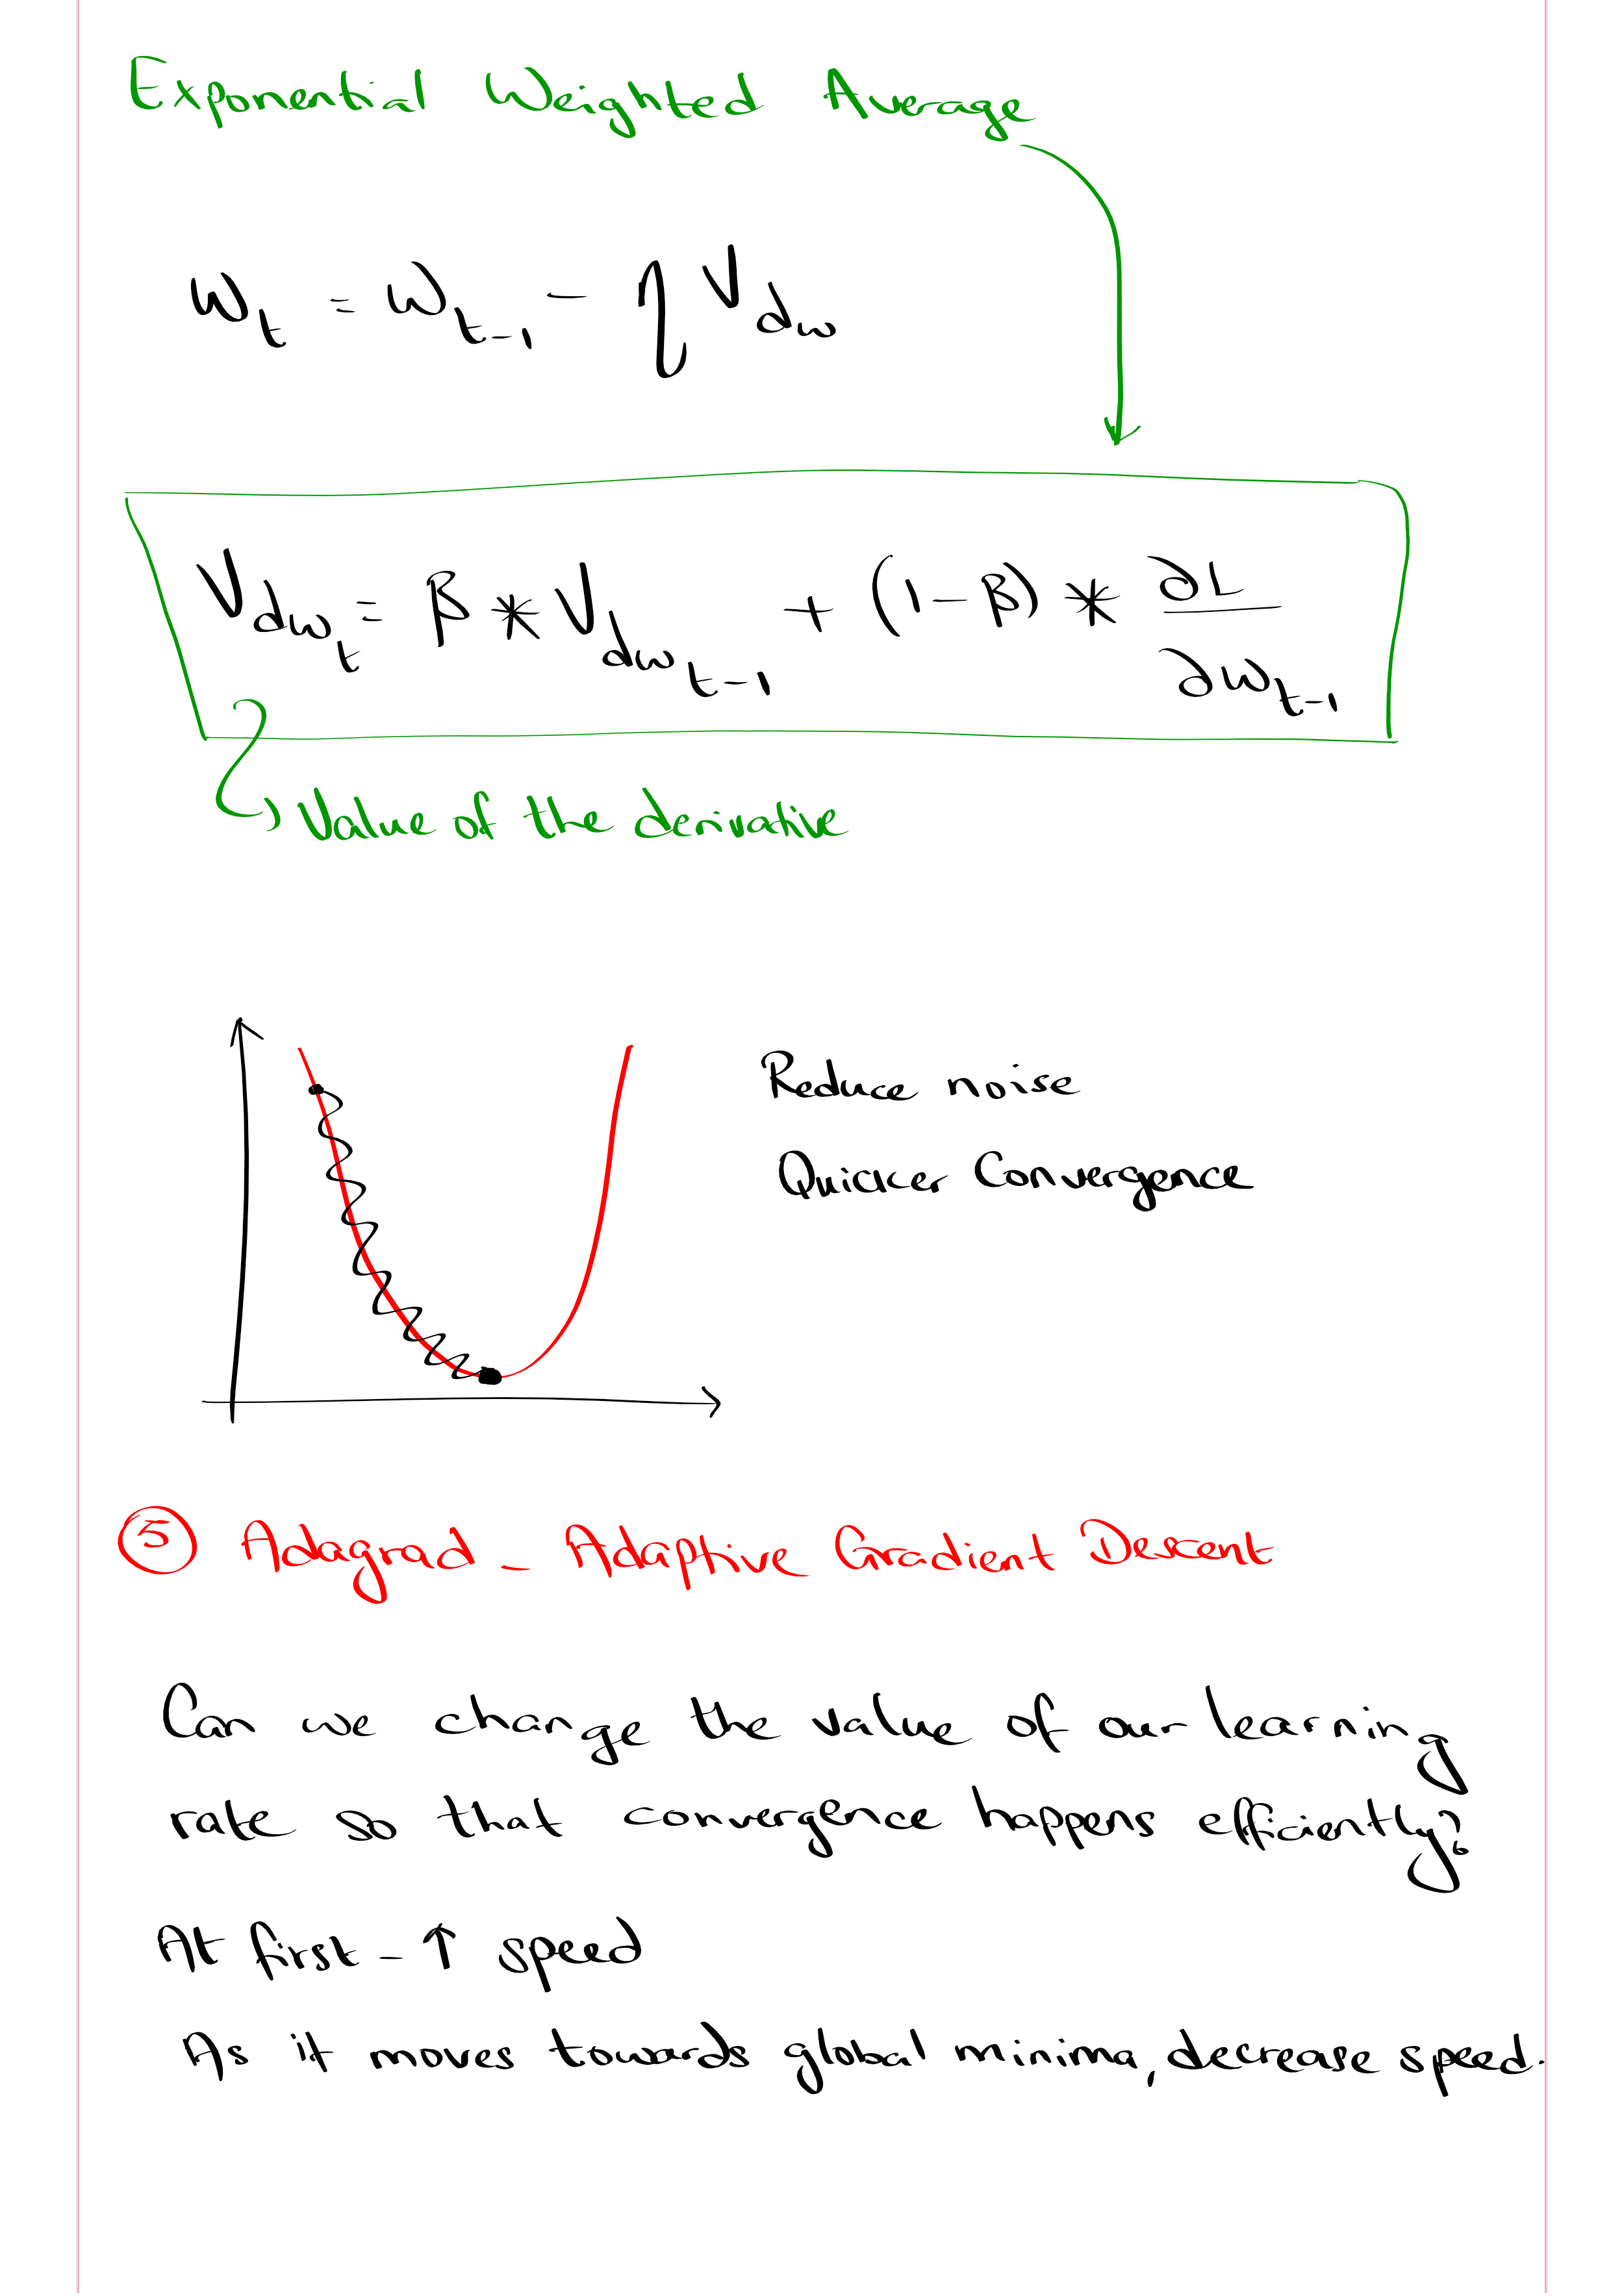 Exponential Weighted Average
ω_t = ω_{t-1} - η V_{dω}
V_{dω_t} = β * V_{dω_{t-1}} + (1-β) * ∂L/∂ω_{t-1}
Value of the derivative
Reduce noise
Quicker Convergence
5 Adagrad - Adaptive Gradient Descent
Can we change the value of our learning
rate so that convergence happens efficiently?
At first - ↑ speed
As it moves towards global minima, decrease speed.